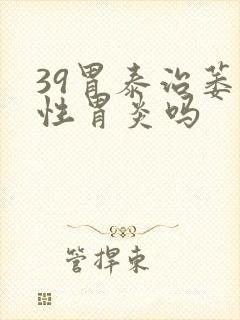 39胃泰治萎
性胃炎吗
管捍东